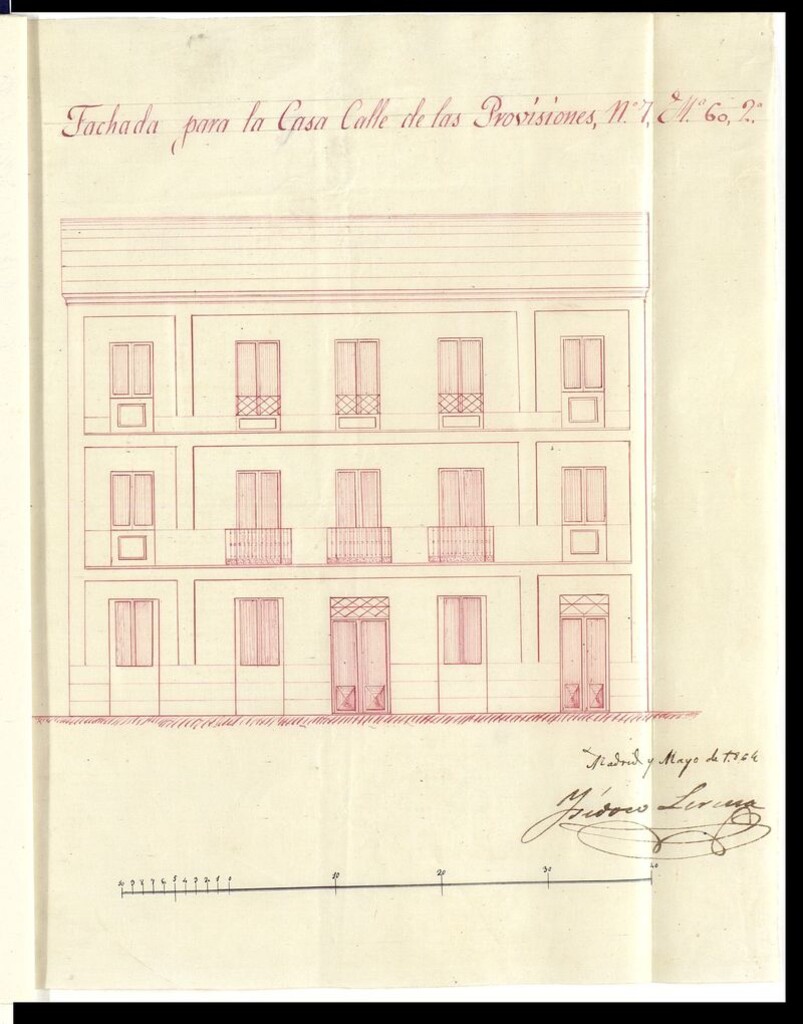 Fachada para la Casa Calle de las Provisiones, N.º 7, M.ª 60, 2.º
Madrid y Mayo de 1.864
Isidoro Lerena
10 9 8 7 6 5 4 3 2 1 0 10 20 30 40